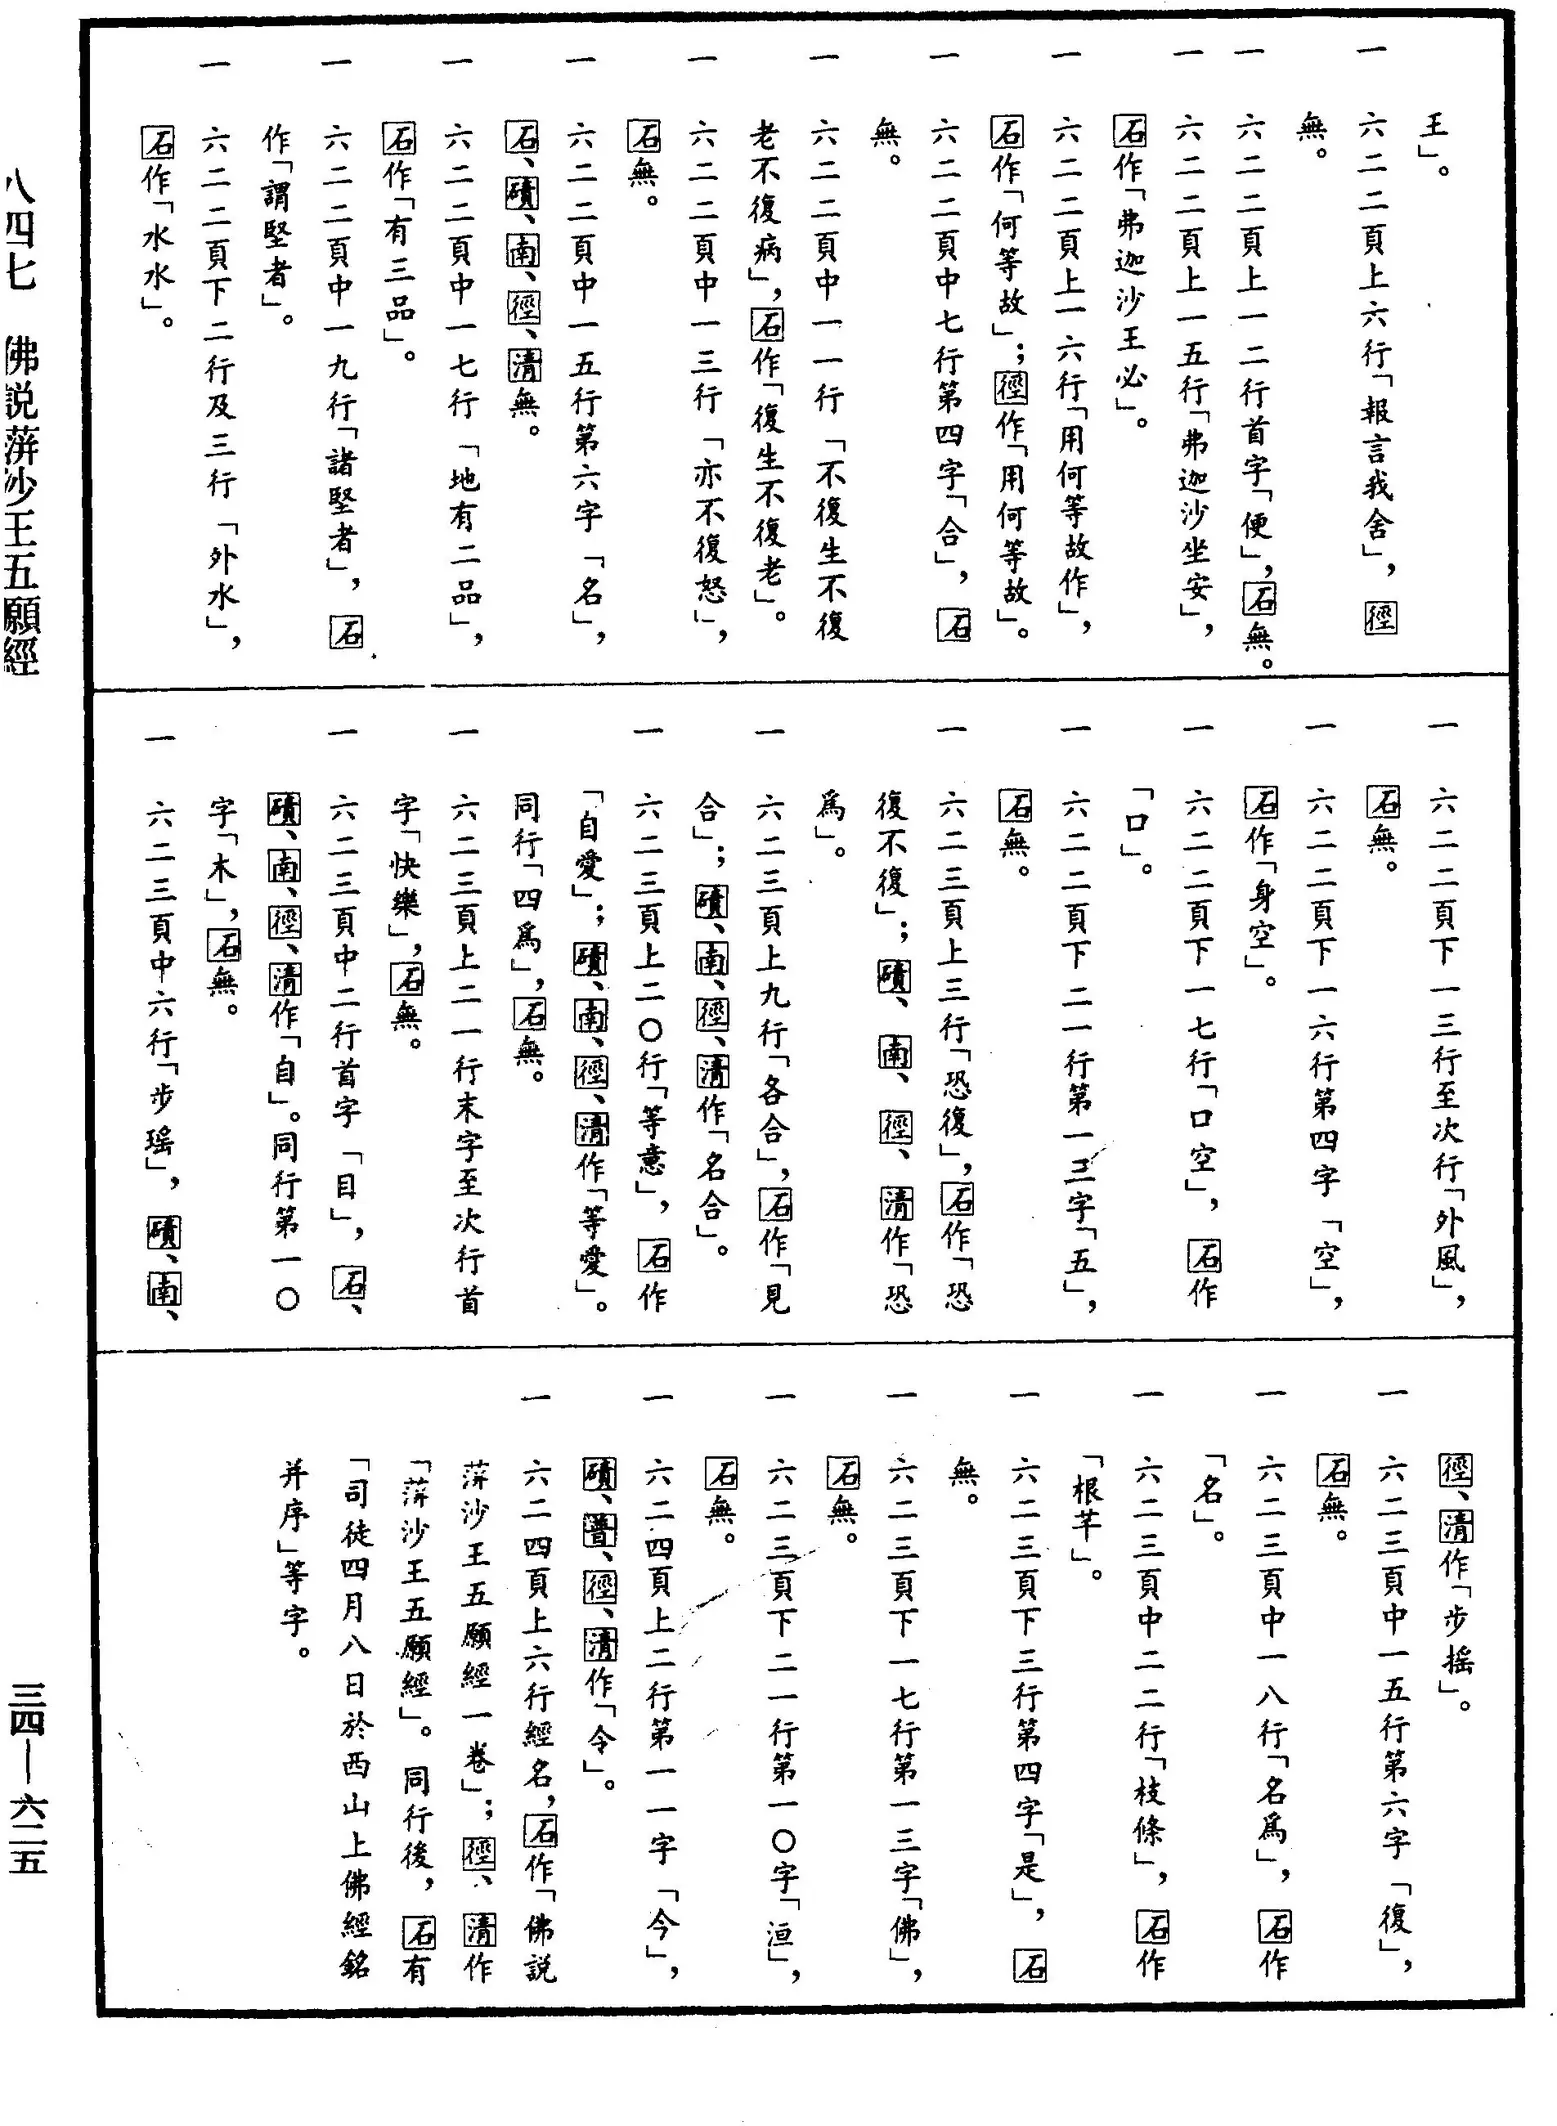 王」。
一 六二二頁上六行「報言我舍」，徑
無。
一 六二二頁上一二行首字「便」，石無。
一 六二二頁上一五行「弗迦沙坐安」，
石作「弗迦沙王必」。
一 六二二頁上一六行「用何等故作」，
石作「何等故」；徑作「用何等故」。
一 六二二頁中七行第四字「合」，石
無。
一 六二二頁中一一行「不復生不復
老不復病」，石作「復生不復老」。
一 六二二頁中一三行「亦不復怒」，
石無。
一 六二二頁中一五行第六字「名」，
石、磧、南、徑、清無。
一 六二二頁中一七行「地有二品」，
石作「有三品」。
一 六二二頁中一九行「諸堅者」，石
作「謂堅者」。
一 六二二頁下二行及三行「外水」，
石作「水水」。
一 六二二頁下一三行至次行「外風」，
石無。
一 六二二頁下一六行第四字「空」，
石作「身空」。
一 六二二頁下一七行「口空」，石作
「口」。
一 六二二頁下二一行第一三字「五」，
石無。
一 六二三頁上三行「恐復」，石作「恐
復不復」；磧、南、徑、清作「恐
爲」。
一 六二三頁上九行「各合」，石作「見
合」；磧、南、徑、清作「名合」。
一 六二三頁上二〇行「等意」，石作
「自愛」；磧、南、徑、清作「等愛」。
同行「四爲」，石無。
一 六二三頁上二一行末字至次行首
字「快樂」，石無。
一 六二三頁中二行首字「目」，石、
磧、南、徑、清作「自」。同行第一〇
字「木」，石無。
一 六二三頁中六行「步瑶」，磧、南、
徑、清作「步摇」。
一 六二三頁中一五行第六字「復」，
石無。
一 六二三頁中一八行「名爲」，石作
「名」。
一 六二三頁中二二行「枝條」，石作
「根芊」。
一 六二三頁下三行第四字「是」，石
無。
一 六二三頁下一七行第一三字「佛」，
石無。
一 六二三頁下二一行第一〇字「洹」，
石無。
一 六二四頁上二行第一一字「今」，
磧、普、徑、清作「令」。
一 六二四頁上六行經名，石作「佛説
蓱沙王五願經一卷」；徑、清作
「蓱沙王五願經」。同行後，石有
「司徒四月八日於西山上佛經銘
并序」等字。
八四七 佛説蓱沙王五願經
三四—六二五